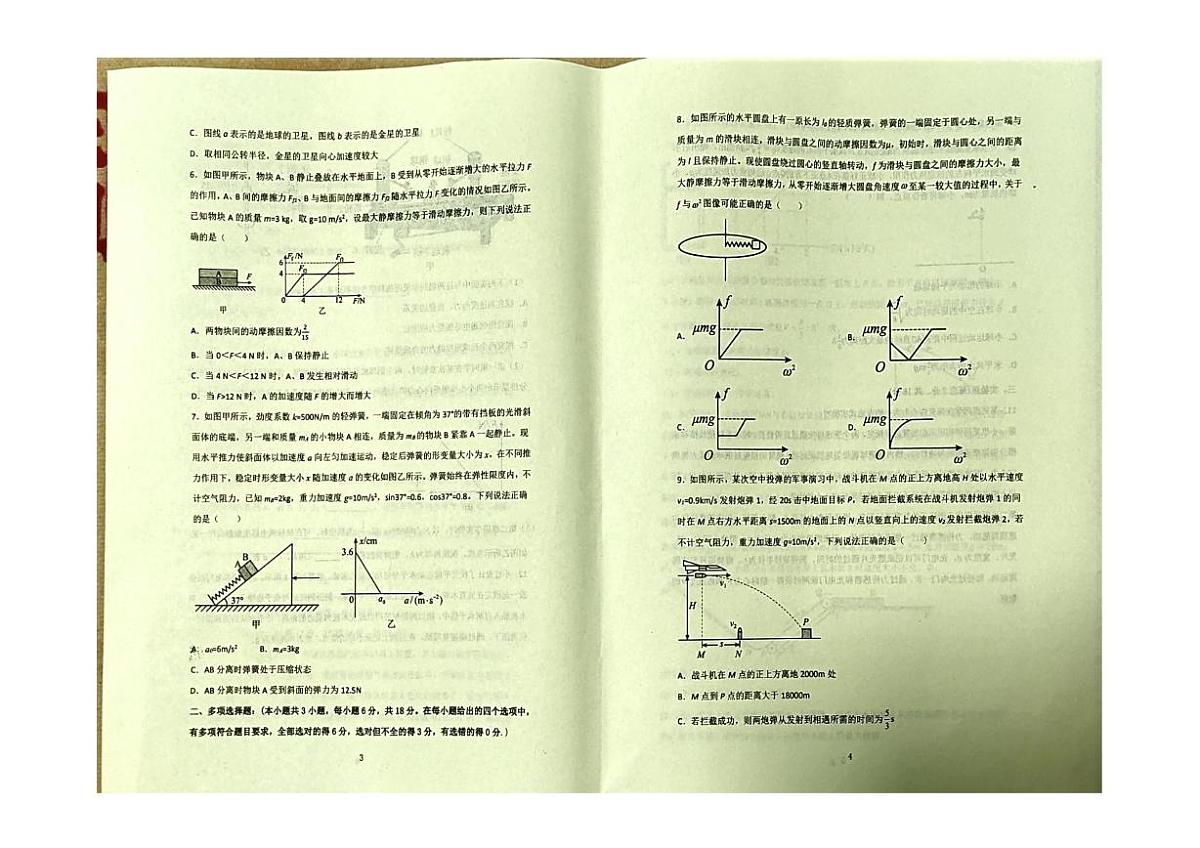 C．图线 a 表示的是地球的卫星，图线 b 表示的是金星的卫星
D．取相同公转半径，金星的卫星向心加速度较大
6．如图甲所示，物块 A、B 静止叠放在水平地面上，B 受到从零开始逐渐增大的水平拉力 F
的作用，A、B 间的摩擦力 Ff1、B 与地面间的摩擦力 Ff2 随水平拉力 F 变化的情况如图乙所示，
已知物块 A 的质量 m=3 kg，取 g=10 m/s²，设最大静摩擦力等于滑动摩擦力，则下列说法正
确的是（ ）
A
B
F
甲
Ff/N
6
4
Ff1
Ff2
0 4 12 F/N
乙
A．两物块间的动摩擦因数为2/15
B．当 0<F<4 N 时，A、B 保持静止
C．当 4 N<F<12 N 时，A、B 发生相对滑动
D．当 F>12 N 时，A 的加速度随 F 的增大而增大
7．如图甲所示，劲度系数 k=500N/m 的轻弹簧，一端固定在倾角为 37°的带有挡板的光滑斜
面体的底端，另一端和质量 mA 的小物块 A 相连，质量为 mB 的物块 B 紧靠 A 一起静止。现
用水平推力使斜面体以加速度 a 向左匀加速运动，稳定后弹簧的形变量大小为 x。在不同推
力作用下，稳定时形变量大小 x 随加速度 a 的变化如图乙所示。弹簧始终在弹性限度内，不
计空气阻力，已知 mB=2kg，重力加速度 g=10m/s²，sin37°=0.6，cos37°=0.8。下列说法正确
的是（ ）
B
A
37°
甲
x/cm
3.6
0 a0 a/(m·s⁻²)
乙
A．a0=6m/s² B．mA=3kg
C．AB 分离时弹簧处于压缩状态
D．AB 分离时物块 A 受到斜面的弹力为 12.5N
二、多项选择题：（本小题共 3 小题，每小题 6 分，共 18 分。在每小题给出的四个选项中，
有多项符合题目要求，全部选对的得 6 分，选对但不全的得 3 分，有选错的得 0 分。）
3
8．如图所示的水平圆盘上有一原长为 l0 的轻质弹簧，弹簧的一端固定于圆心处，另一端与
质量为 m 的滑块相连，滑块与圆盘之间的动摩擦因数为μ，初始时，滑块与圆心之间的距离
为 l 且保持静止。现使圆盘绕过圆心的竖直轴转动，f 为滑块与圆盘之间的摩擦力大小，最
大静摩擦力等于滑动摩擦力，从零开始逐渐增大圆盘角速度 ω 至某一较大值的过程中，关于
f 与 ω² 图像可能正确的是（ ）
A． f μmg O ω²
B． f μmg O ω²
C． f μmg O ω²
D． f μmg O ω²
9．如图所示，某次空中投弹的军事演习中，战斗机在 M 点的正上方离地高 H 处以水平速度
v1=0.9km/s 发射炮弹 1，经 20s 击中地面目标 P。若地面拦截系统在战斗机发射炮弹 1 的同
时在 M 点右方水平距离 s=1500m 的地面上的 N 点以竖直向上的速度 v2 发射拦截炮弹 2，若
不计空气阻力，重力加速度 g=10m/s²，下列说法正确的是（ ）
v1
H
v2
P
s
M N
A．战斗机在 M 点的正上方离地 2000m 处
B．M 点到 P 点的距离大于 18000m
C．若拦截成功，则两炮弹从发射到相遇所需的时间为5/3s
4